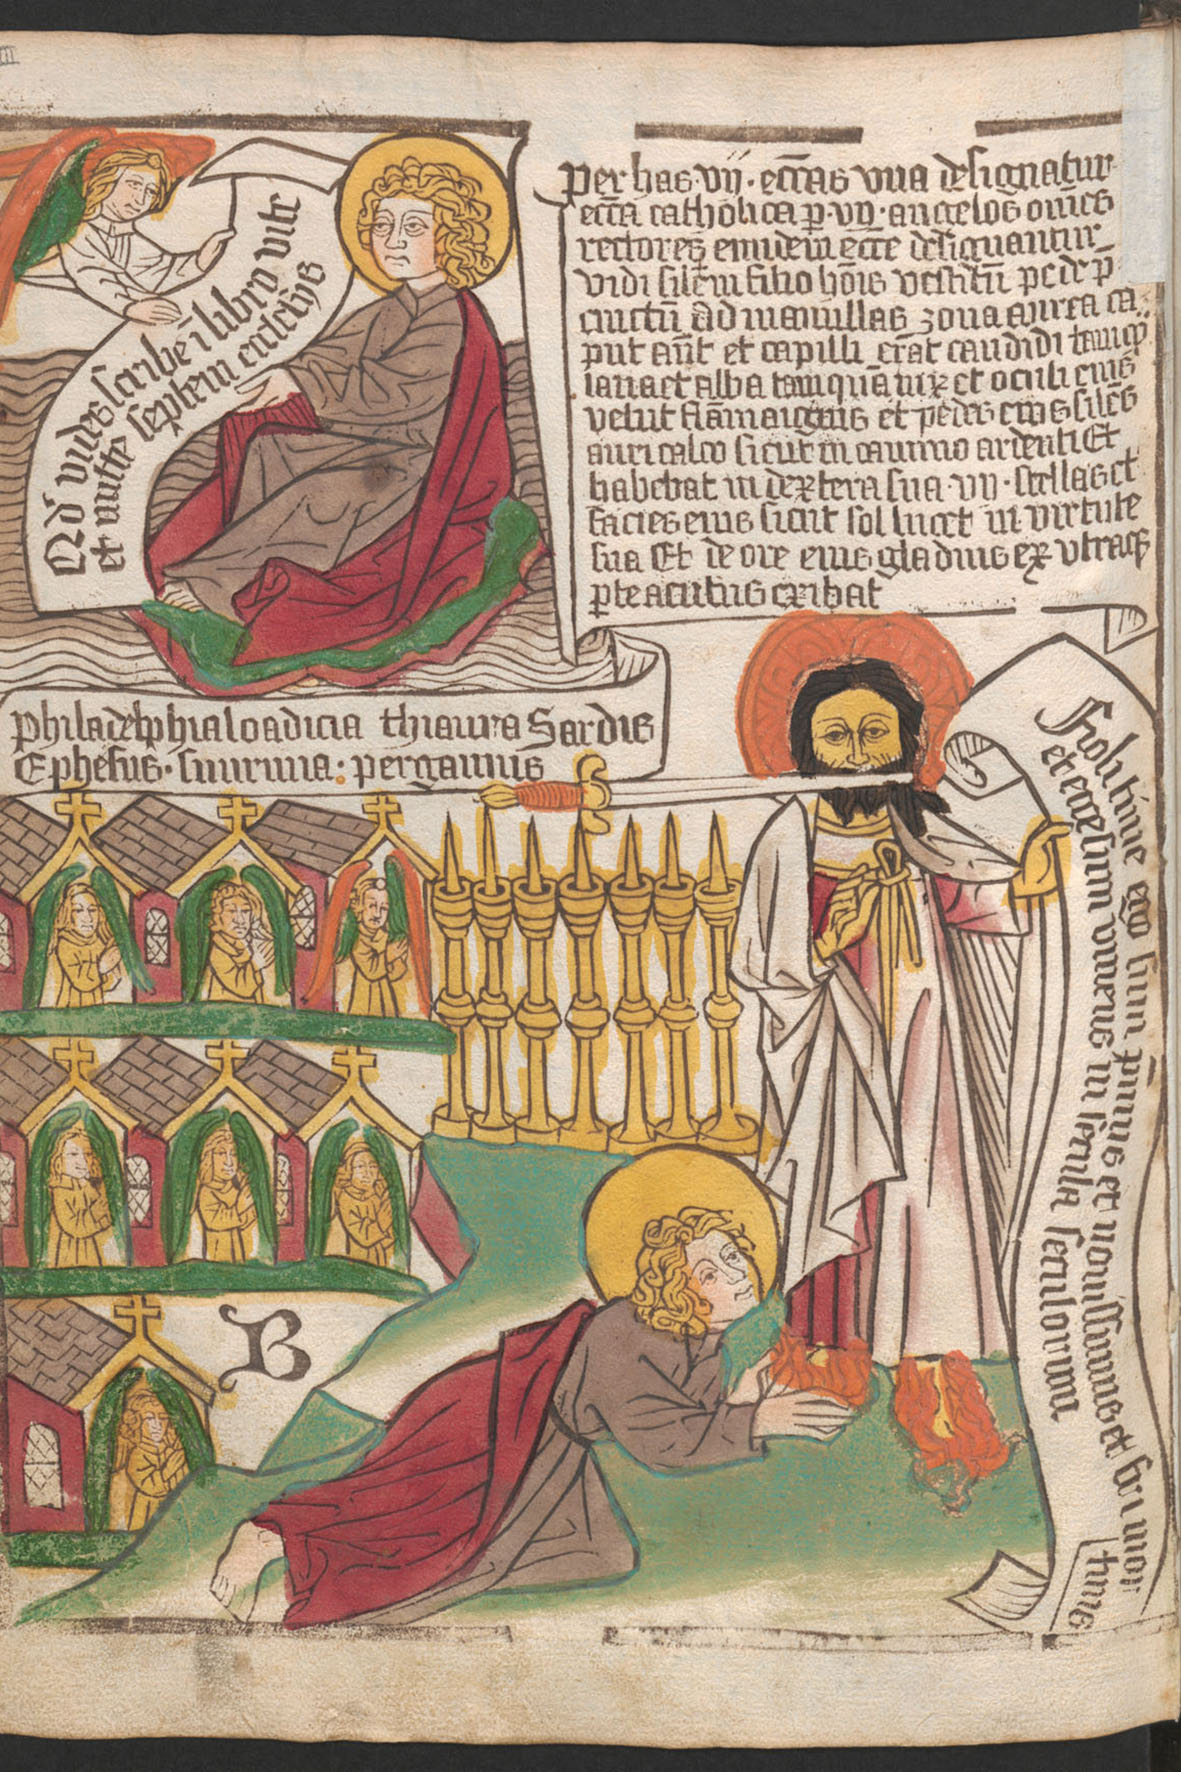 Qd̄ vides scribe ī libro vite
et mitte septem ecclesijs
Per has · vij · ecc̄as vna designatur
ecc̄a catholica p̲ · vij · angelos om̄es
rectores eiusdem ecc̄e designantur
vidi sil̄em filio hōis vestitū podere p̲
cinctū ad mamillas zona aurea ca
put aūt et capilli erāt candidi tamq̄
lana et alba tamquā nix et oculi eius
velut flāma ignis et pedes eius sil̄es
auricalco sicut in camino ardenti Et
habebat in dextera sua · vij · stellas et
facies eius sicut sol lucet in virtute
sua Et de ore eius gladius ex vtraq̄
p̲te acutus exibat
philadelphia loadicia thiatira Sardis
Ephesus · smirnia · pergamus
Noli time ego sum p̄mus et nouissimus et fui mor
tuus
et ecce sum viuens in secula seculorum
B